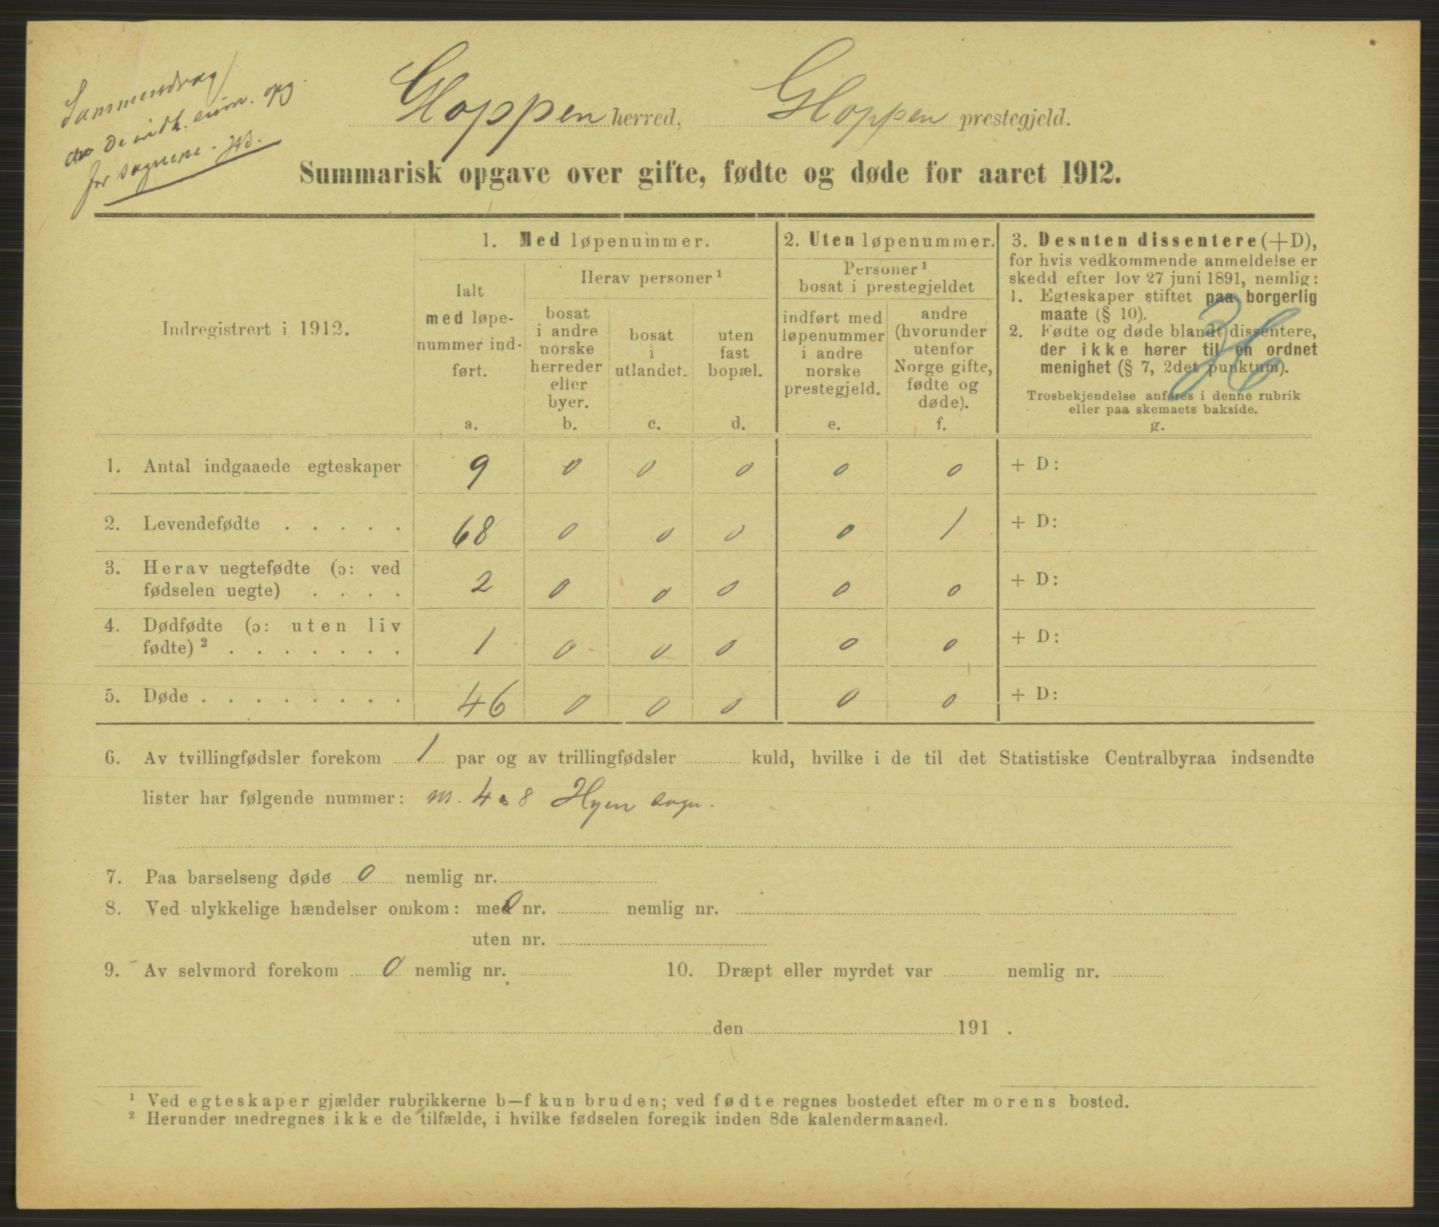 Sammendrag
av de indk. sum. opg.
for sognene.
Gloppen herred, Gloppen prestegjeld.
Summarisk opgave over gifte, fødte og døde for aaret 1912.
Indregistrert i 1912.
1. Med løpenummer.
Ialt
med løpe-
nummer ind-
ført.
a.
Herav personer ¹
bosat
i andre
norske
herreder
eller
byer.
b.
bosat
i
utlandet.
c.
uten
fast
bopæl.
d.
2. Uten løpenummer.
Personer ¹
bosat i prestegjeldet
indført med
løpenummer
i andre
norske
prestegjeld.
e.
andre
(hvorunder
utenfor
Norge gifte,
fødte og
døde).
f.
3. Desuten dissentere (+D),
for hvis vedkommende anmeldelse er
skedd efter lov 27 juni 1891, nemlig:
1. Egteskaper stiftet paa borgerlig
maate (§ 10).
2. Fødte og døde blandt dissentere,
der ikke hører til en ordnet
menighet (§ 7, 2det punktum).
Trosbekjendelse anføres i denne rubrik
eller paa skemaets bakside.
g.
1. Antal indgaaede egteskaper 9 0 0 0 0 0 + D:
2. Levendefødte . . . . . 68 0 0 0 0 1 + D:
3. Herav uegtefødte (ɔ: ved
fødselen uegte) . . . . 2 0 0 0 0 0 + D:
4. Dødfødte (ɔ: uten liv
fødte) ² . . . . . . . 1 0 0 0 0 0 + D:
5. Døde . . . . . . . . 46 0 0 0 0 0 + D:
6. Av tvillingfødsler forekom 1 par og av trillingfødsler kuld, hvilke i de til det Statistiske Centralbyraa indsendte
lister har følgende nummer: nr. 4 8 Hyen sogn.
7. Paa barselseng døde 0 nemlig nr.
8. Ved ulykkelige hændelser omkom: med 0 nr. nemlig nr.
uten nr.
9. Av selvmord forekom 0 nemlig nr. 10. Dræpt eller myrdet var nemlig nr.
den 191 .
¹ Ved egteskaper gjælder rubrikkerne b—f kun bruden; ved fødte regnes bostedet efter morens bosted.
² Herunder medregnes ikke de tilfælde, i hvilke fødselen foregik inden 8de kalendermaaned.